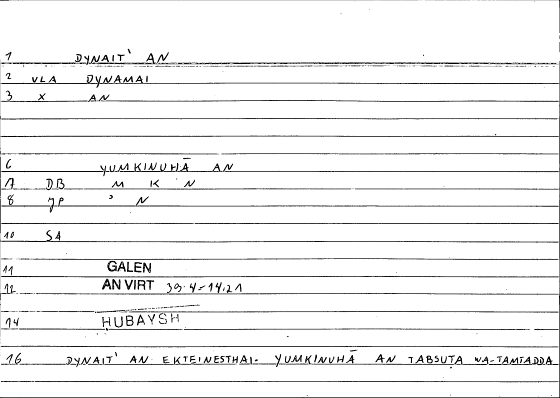 1 DYNAIT' AN
2 VLA DYNAMAI
3 X AN
6 YUMKINUHĀ AN
7 DB M K N
8 JP ' N
10 SA
11 GALEN
12 AN VIRT 39.4-14.21
14 HUBAYSH
16 DYNAIT' AN EKTEINESTHAI- YUMKINUHĀ AN TABSUṬA WA-TAMTADDA